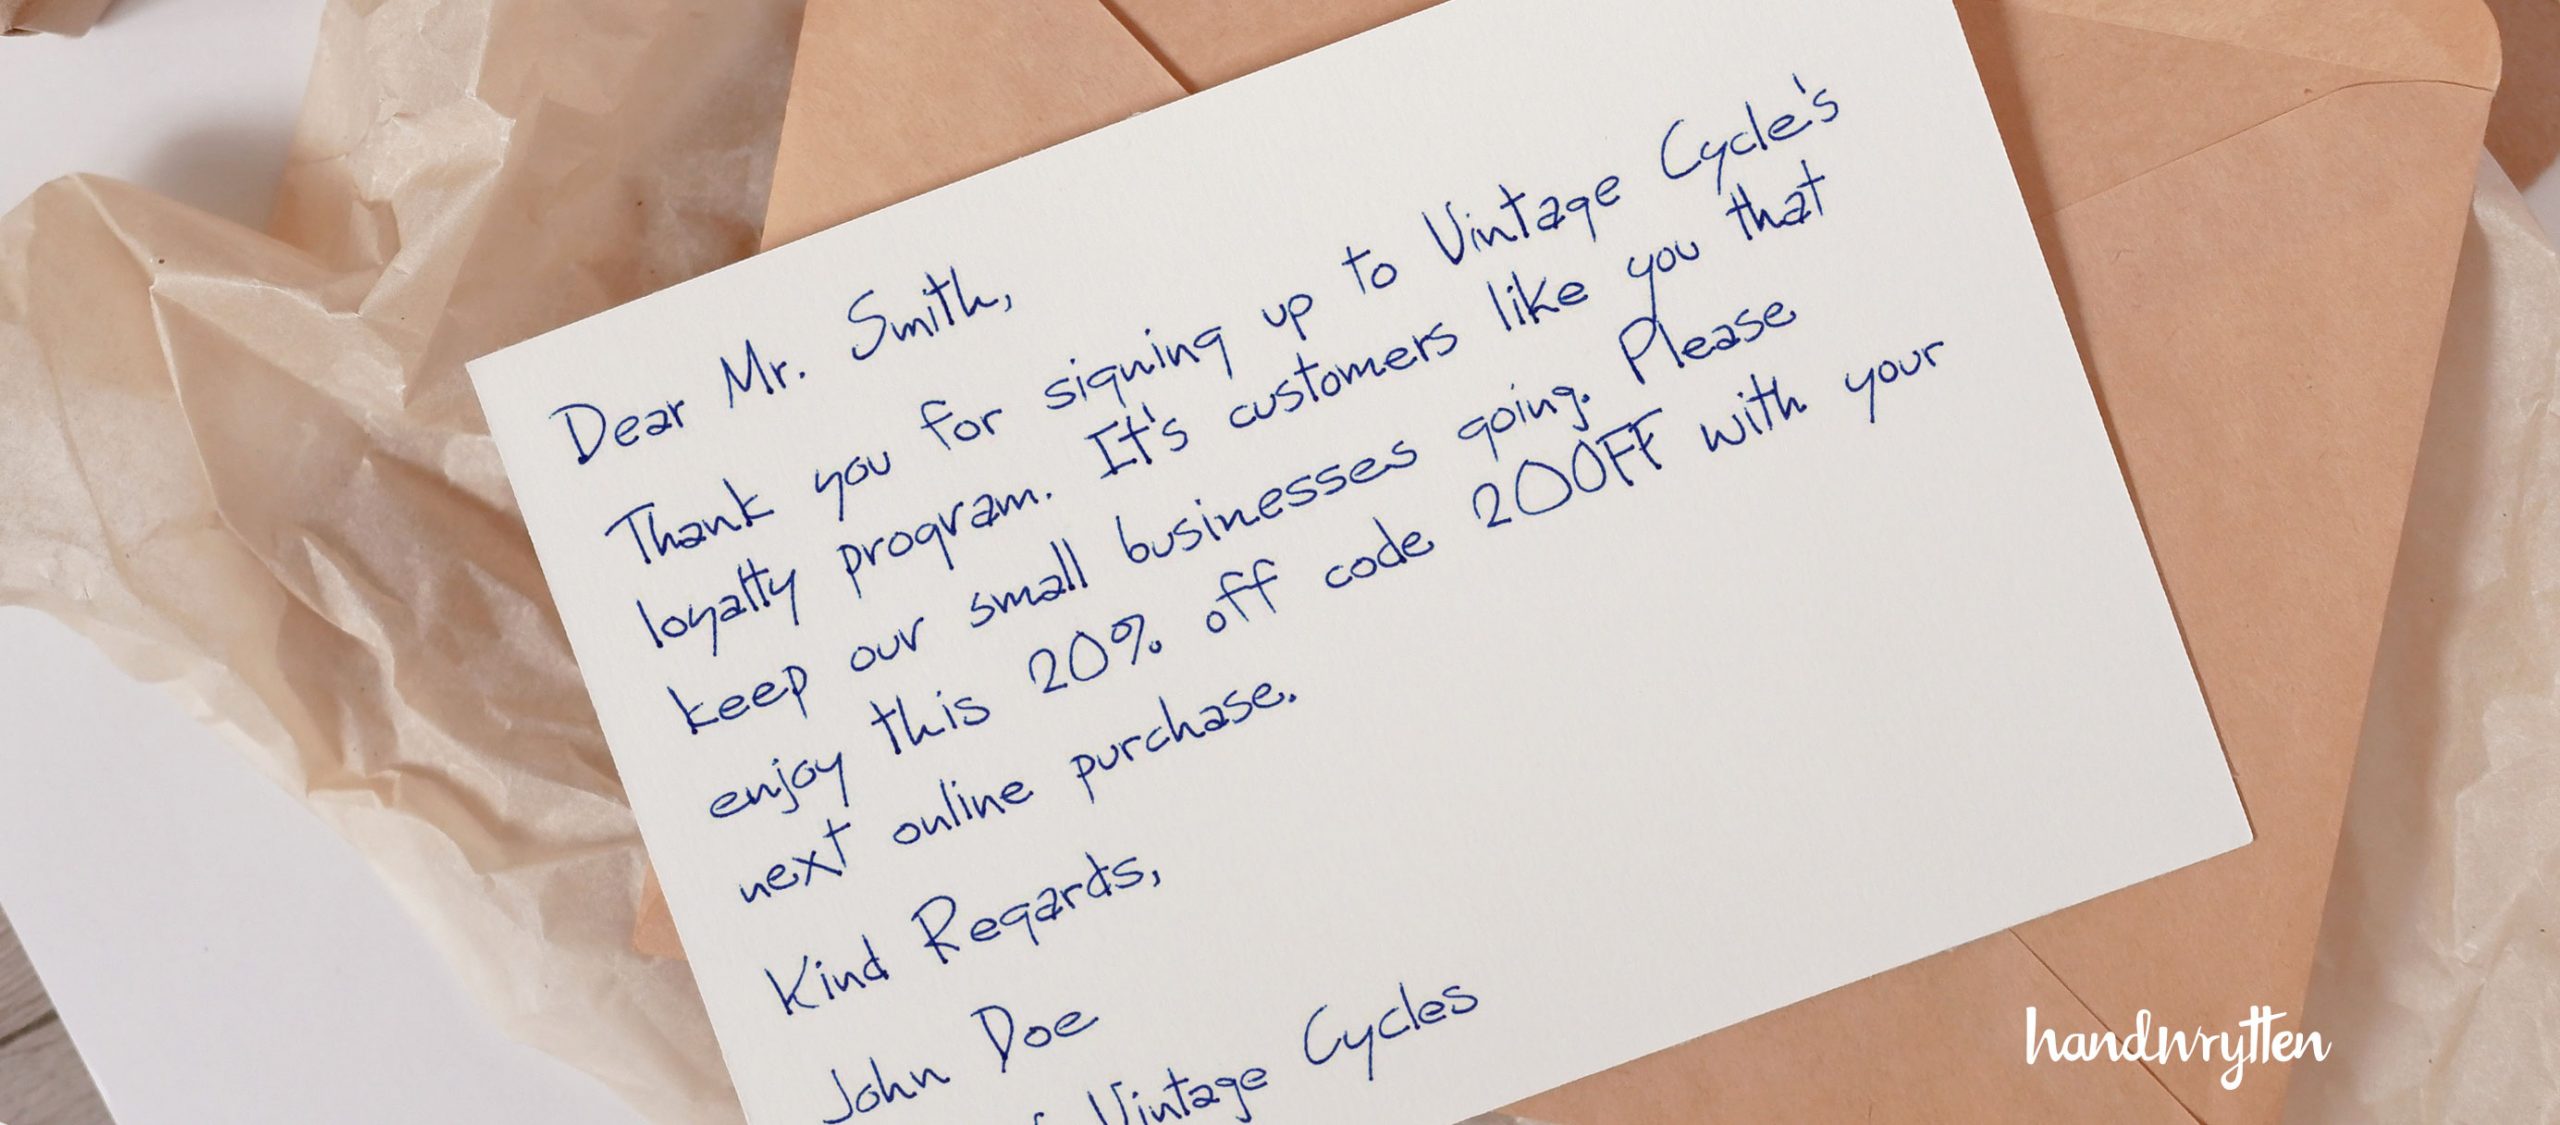 Dear Mr. Smith,
Thank you for signing up to Vintage Cycle's
loyalty program. It's customers like you that
keep our small businesses going. Please
enjoy this 20% off code 20OFF with your
next online purchase.
Kind Regards,
John Doe
Vintage Cycles
handwrytten